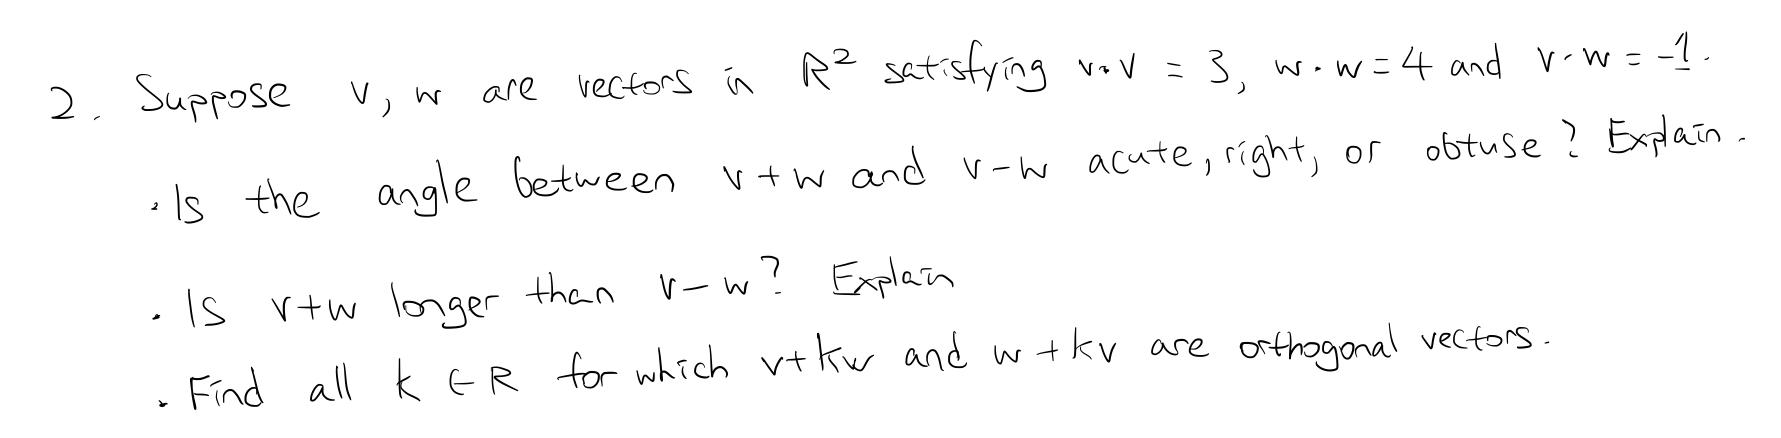 2. Suppose v, w are vectors in R² satisfying v·v = 3, w·w = 4 and v·w = -1.
· Is the angle between v+w and v-w acute, right, or obtuse? Explain.
· Is v+w longer than v-w? Explain
· Find all k ∈ R for which v+kw and w+kv are orthogonal vectors.